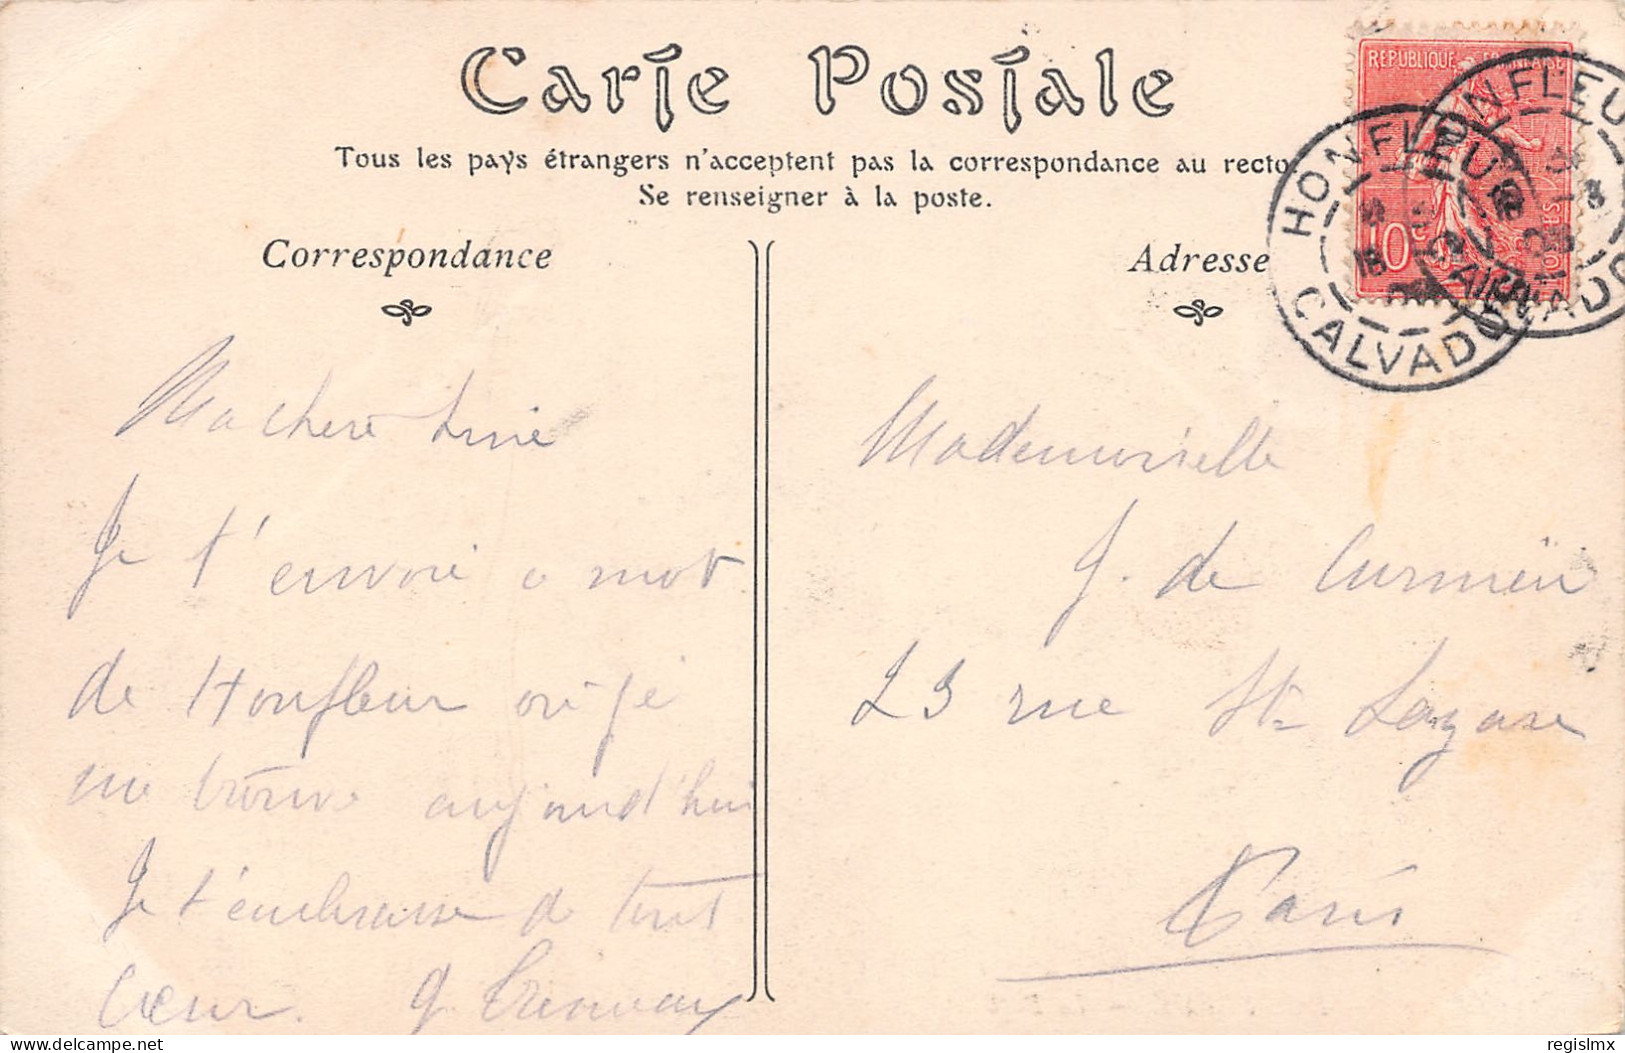 Carte Postale
Tous les pays étrangers n'acceptent pas la correspondance au recto
Se renseigner à la poste.
Correspondance
Adresse
REPUBLIQUE FRANÇAISE
10c
POSTES
HONFLEUR
CALVADOS
HONFLEUR
CALVADOS
Ma chère
Je t'envoie 1 mot
de Honfleur où je
me trouve aujourd'hui
Je t'embrasse de tout
cœur. G.
Mademoiselle
J. de
23 rue St Lazare
Paris
delcampe.net
regislmx